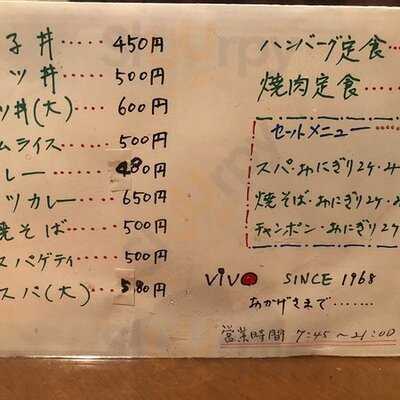 子丼‥‥ 450円
ツ丼‥‥ 500円
ツ丼(大)‥‥ 600円
ムライス‥‥ 500円
レー‥‥ 480円
ツカレー‥‥ 650円
焼そば‥‥ 500円
スパゲティ 500円
スパ(大)‥‥ 580円
ハンバーグ定食‥‥
焼肉定食‥‥‥
セットメニュー‥‥
スパ・おにぎり2ケ・み
焼そば・おにぎり2ケ・
チャンポン・おにぎり2ケ
ViVO SINCE 1968
おかげさまで‥‥‥
営業時間 7:45~21:00